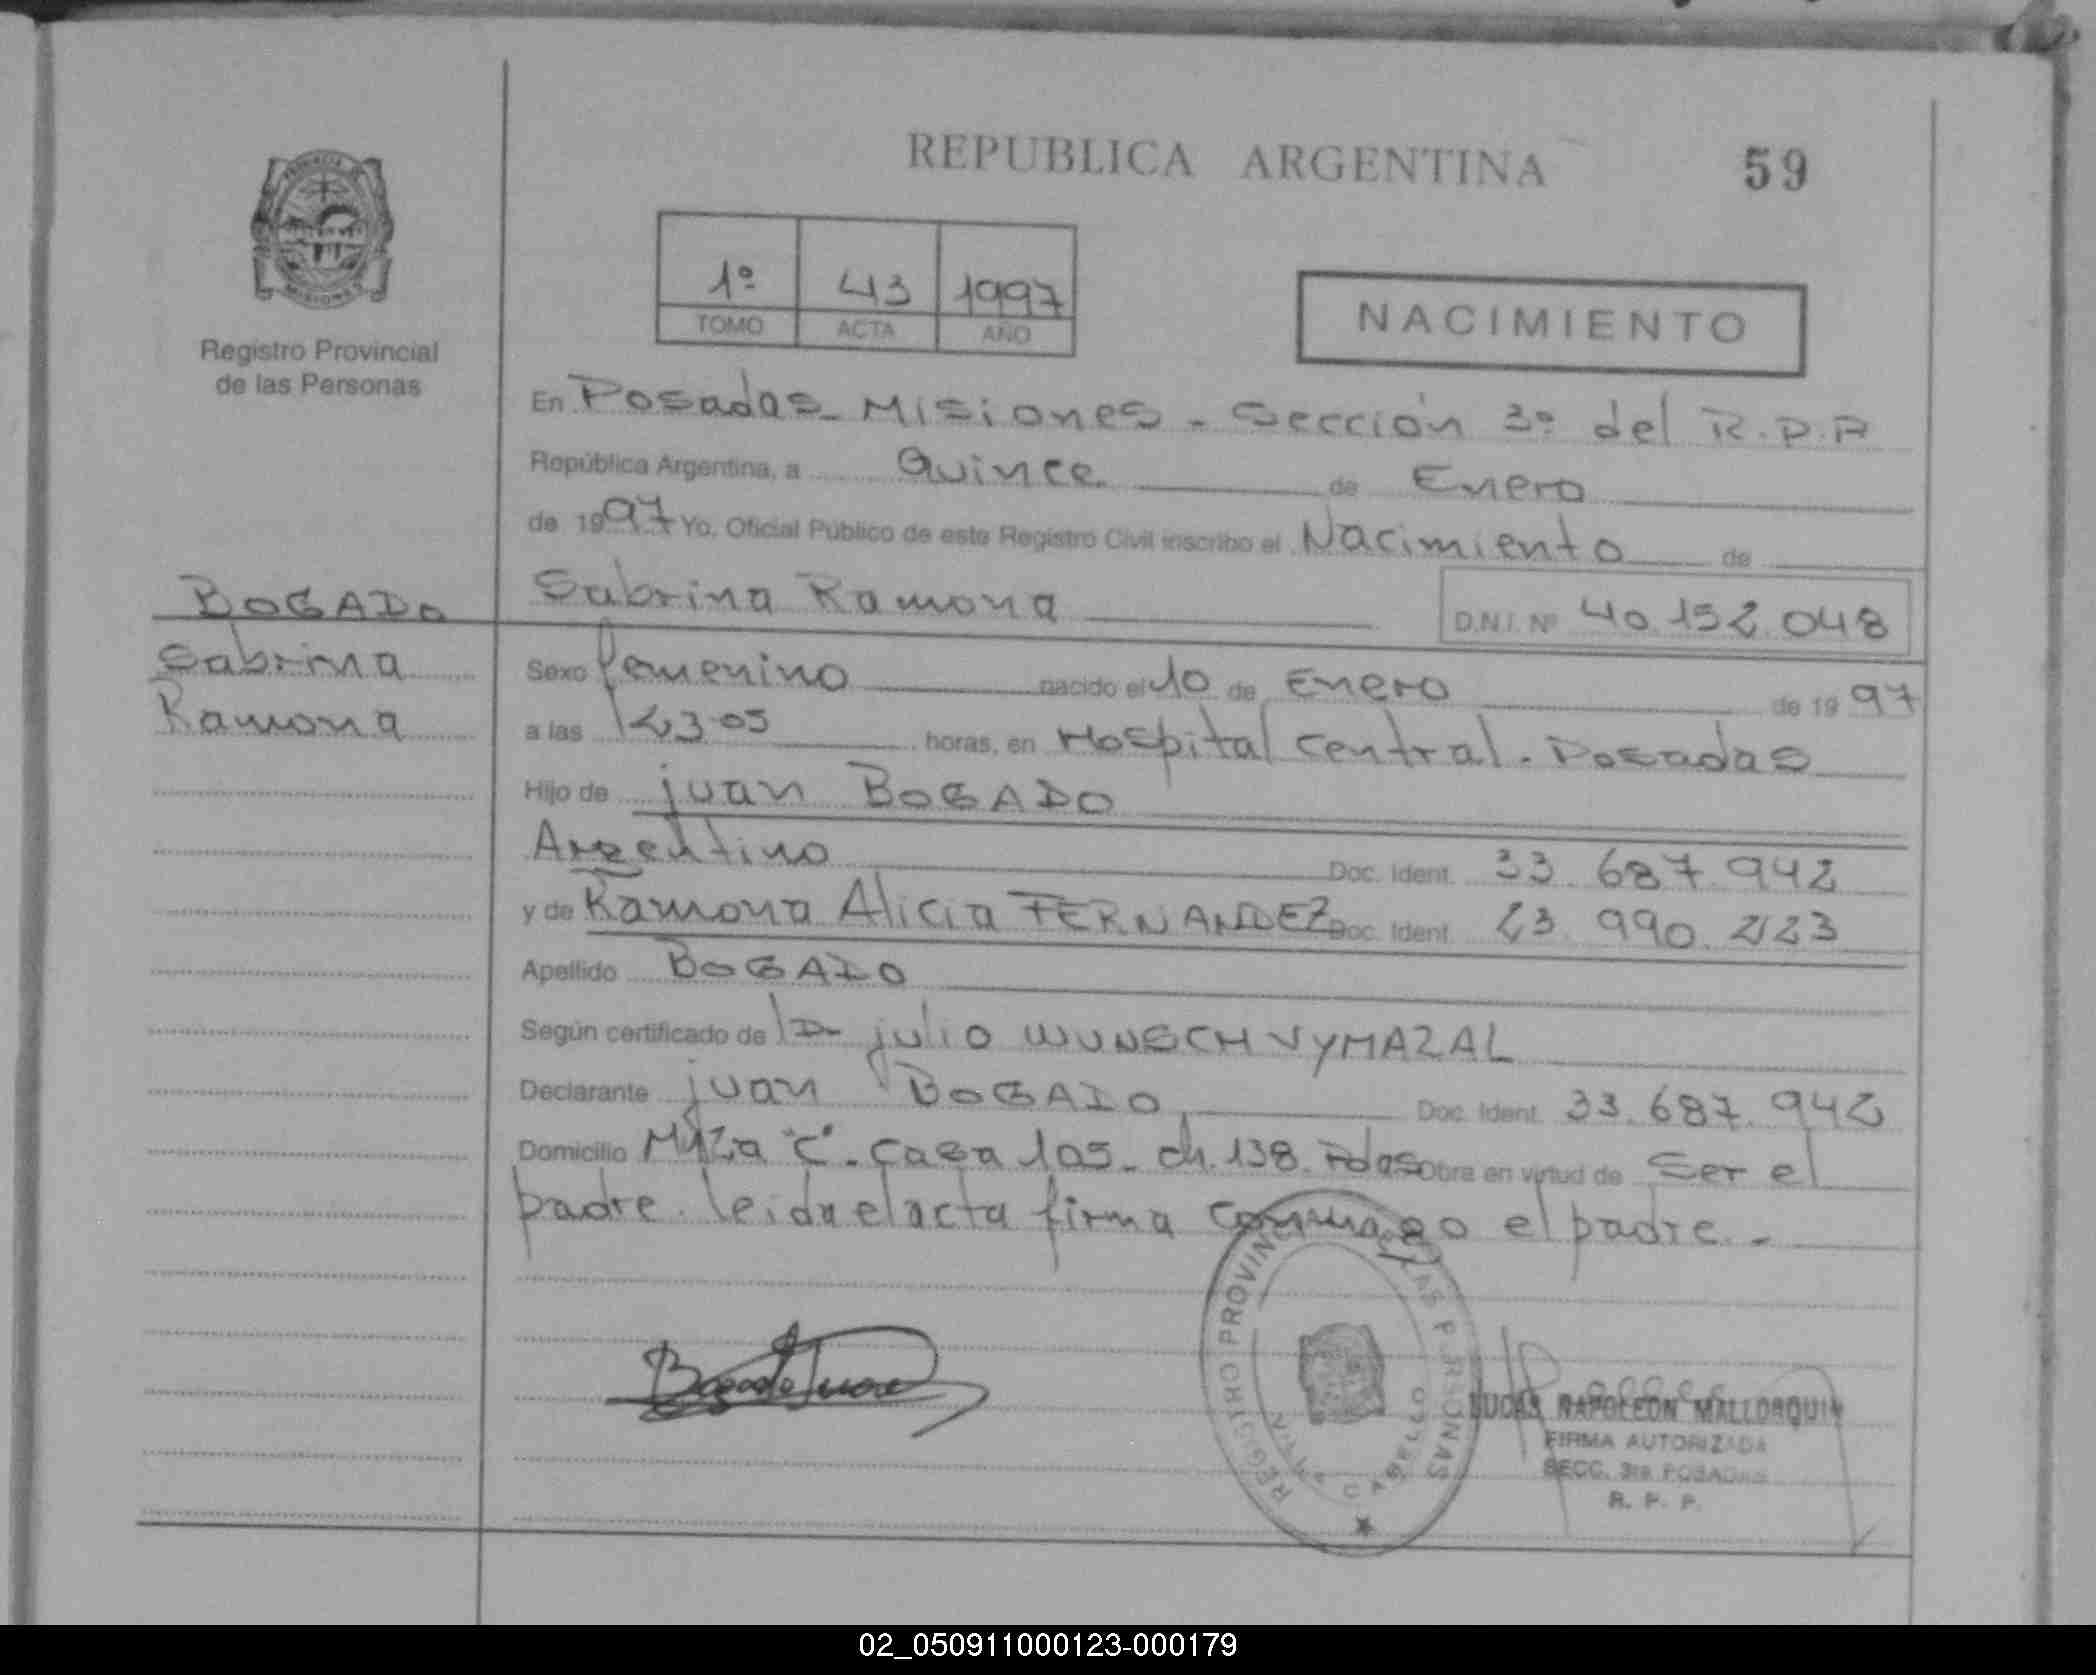 REPUBLICA ARGENTINA 59
PROVINCIA DE MISIONES
Registro Provincial
de las Personas
1º 43 1997
TOMO ACTA AÑO
NACIMIENTO
En Posadas - Misiones - Sección 3º del R.P.P
República Argentina, a Quince de Enero
de 1997 Yo, Oficial Público de este Registro Civil inscribo el Nacimiento de
BOGADO Sabrina Ramona D.N.I. Nº 40.152.048
Sabrina Sexo femenino nacido el 10 de Enero de 1997
Ramona a las 23-05 horas, en Hospital Central. Posadas
Hijo de Juan BOGADO
Argentino Doc. Ident. 33.687.942
y de Ramona Alicia FERNANDEZ Doc. Ident. 23.990.223
Apellido BOGADO
Según certificado de Dr Julio WUNSCH VYMAZAL
Declarante Juan BOGADO Doc. Ident. 33.687.942
Domicilio Mza "C" - Casa 105 - ch. 138. Pdas Obra en virtud de Ser el
padre. leida el acta firma conmigo el padre. -
Bogado Juan
REGISTRO PROVINCIAL DE LAS PERSONAS
CABELLO
LUCAS NAPOLEON MALLORQUIN
FIRMA AUTORIZADA
SECC. 3ra POSADAS
R. P. P.
02_050911000123-000179